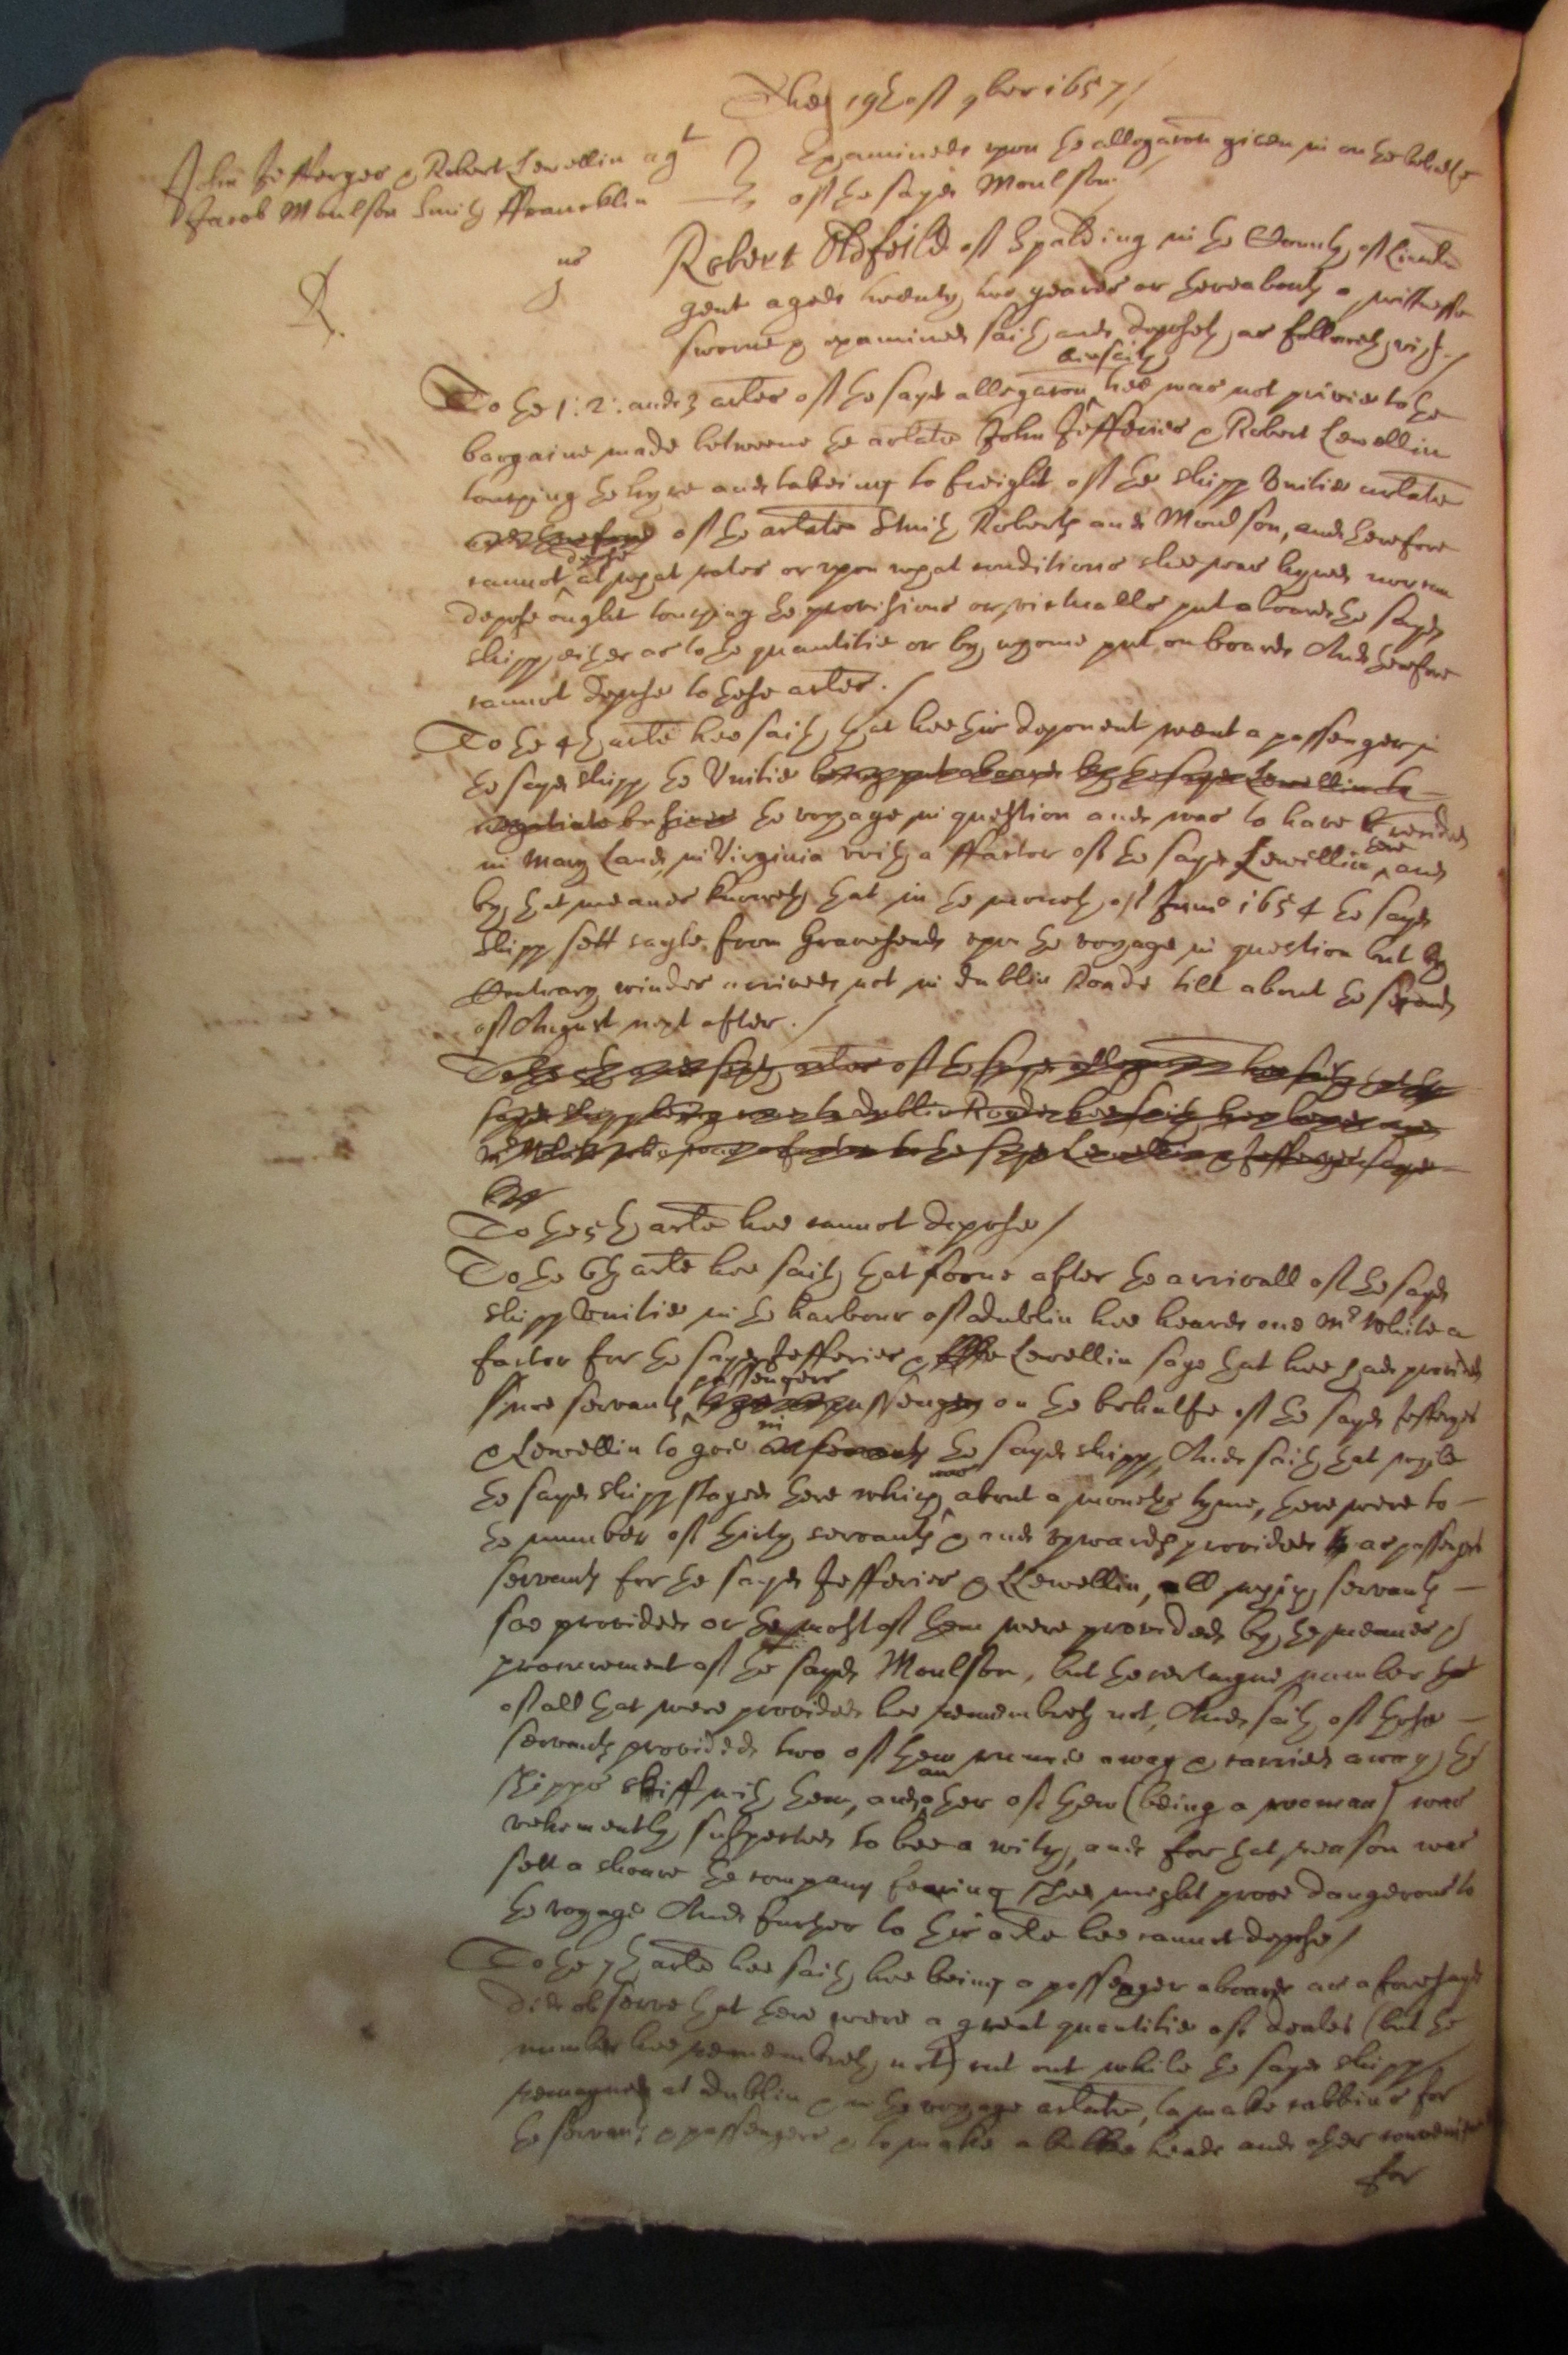 The 19th of 9ber 1657/
John Jefferyes & Robert Lewellin agt
Jacob Moulson Smith ffrancklin
Examined upon the allegaron given in on the behalfe
of the sayd Moulson
R.
us
J
Robert Oldfeild of Spalding in the County of Lincolne
gent aged twenty two yeares or thereabouts a wittnesse
sworne & examined saith and deposeth as followeth, vizt./
To the 1: 2: and 3 artes of the sayd allegaron hee saith hee was not privie to the
bargaine made betweene the arlate John Jefferies & Robert Lewellin
touching the hyre and takeing to freight of the shipp Unitie arlate
and therefore of the arlate Smith Roberts and Moulson, and therefore
cannot depose at what rates or upon what conditions shee was hyred nor can
depose ought touching the provisions or victualls put aboard the sayd
shipp, either as to the quantitie or by whome put on board And therefore
cannot depose to these artes./
To the 4th arte hee saith that hee this deponent went a passenger in
the sayd shipp the Unitie being put aboard by the sayd Lewellin to
negotiate busines the voyage in question and was to have resided
in Mary Land, in Virginia with a ffactor of the sayd Lewellin there and
by that meanes knoweth that in the moneth of June 1654 the sayd
shipp sett sayle from Gravesend upon the voyage in question but by
Contrary windes arrived not in Dublin Roade till about the second
of August next after./
To the 5th and sixth artes of the sayd allegaron hee saith that the
sayd shipp being come to Dublin Roade hee saith
the sayd Lewellin & Jefferyes sayd
To the 5th arte hee cannot depose/
To the 6th arte hee saith that soone after the arrivall of the sayd
shipp Unitie in the harbour of Dublin hee heard one Mr White a
factor for the sayd Jefferies & Lewellin saye that hee had provided
some servants passengers passengers on the behalfe of the sayd Jefferyes
& Lewellin to goe in as servants the sayd shipp, And saith that while
the sayd shipp stayed there which was about a moneths tyme, there were to
the number of thirty servants & and upwards provided as passengers
servants for the sayd Jefferies & Llewellin, all which servants
soe provided or the most of them were provided by the meanes &
procurement of the sayd Moulson, but the certayne number
of all that were provided hee remembreth not, And saith of those
servants provided two of them runne away & carried away the
shipps skiff with them, and an other of them (being a woman) was
vehemently suspected to bee a witch, and for that reason was
sett a shoare the company fearing shee might prove dangerous to
the voyage And further to this arte hee cannot depose/
To the 7th arte hee saith hee being a passenger aboard as aforesayd
did observe that there were a great quantitie of deales (but the
number hee remembreth not) cut out while the sayd shipp
remayned at Dublin & in the voyage arlate, to make cabbins for
the servants & passengers & to make a bulke heade and other conveniences
for